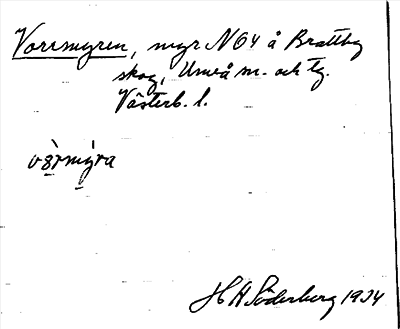 Vorrmyren, myr NO4 å Brattby
skog, Umeå sn. och tg.
Västerb. l.
vo̤rmy̤ra
H H Söderberg 1934